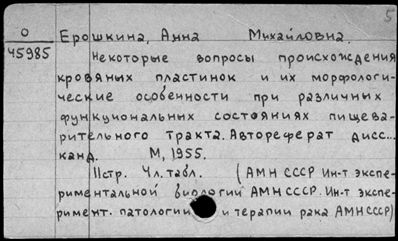 5
О Ерошкина, Анна Михайловна.
45985 Некоторые вопросы происхождения
кровяных пластинок и их морфологи-
ческие особенности при различных
функциональных состояниях пищева-
рительного тракта. Автореферат дисс...
канд. М, 1955.
11стр. Чл. табл. (АМН СССР Ин-т экспе-
риментальной биологии АМН СССР. Ин-т экспе-
римент. патологии и терапии рака АМН СССР)